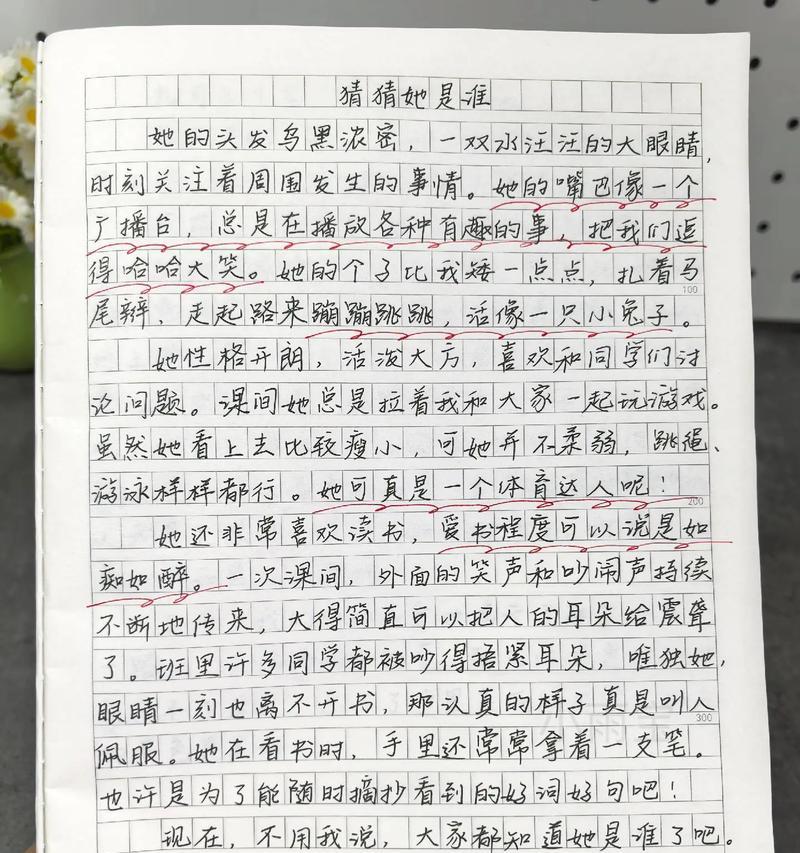 猜猜她是谁
她的头发乌黑浓密，一双水汪汪的大眼睛，
时刻关注着周围发生的事情。她的嘴巴像一个
广播台，总是在播放各种有趣的事，把我们逗
得哈哈大笑。她的个子比我矮一点点，扎着马
100
尾辫，走起路来蹦蹦跳跳，活像一只小兔子。
她性格开朗，活泼大方，喜欢和同学们讨
论问题。课间她总是拉着我和大家一起玩游戏。
虽然她看上去比较瘦小，可她并不柔弱，跳绳、
游泳样样都行。她可真是一个体育达人呢！
200
她还非常喜欢读书，爱书程度可以说是如
痴如醉。一次课间，外面的笑声和吵闹声持续
不断地传来，大得简直可以把人的耳朵给震聋
了。班里许多同学都被吵得捂紧耳朵，唯独她，
眼睛一刻也离不开书，那认真的样子真是叫人
300
佩服。她在看书时，手里还常常拿着一支笔。
也许是为了能随时摘抄看到的好词好句吧！
现在，不用我说，大家都知道她是谁了吧。